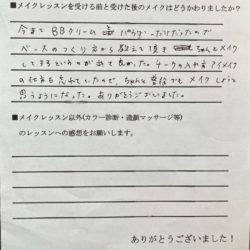 ■メイクレッスンを受ける前と受けた後のメイクはどうかわりましたか？
今まで BBクリーム パウダーだけだったので
ベースのつくり方から教えて頂き ちゃんとメイク
してるというのが出て良かった。チークの入れ方アイメイク
の仕方も忘れていたので、ちゃんと普段でもメイクしようと
思うようになった。ありがとうございました。
■メイクレッスン以外(カラー診断・造顔マッサージ等)
のレッスンへの感想をお願いします。
ありがとうございました！